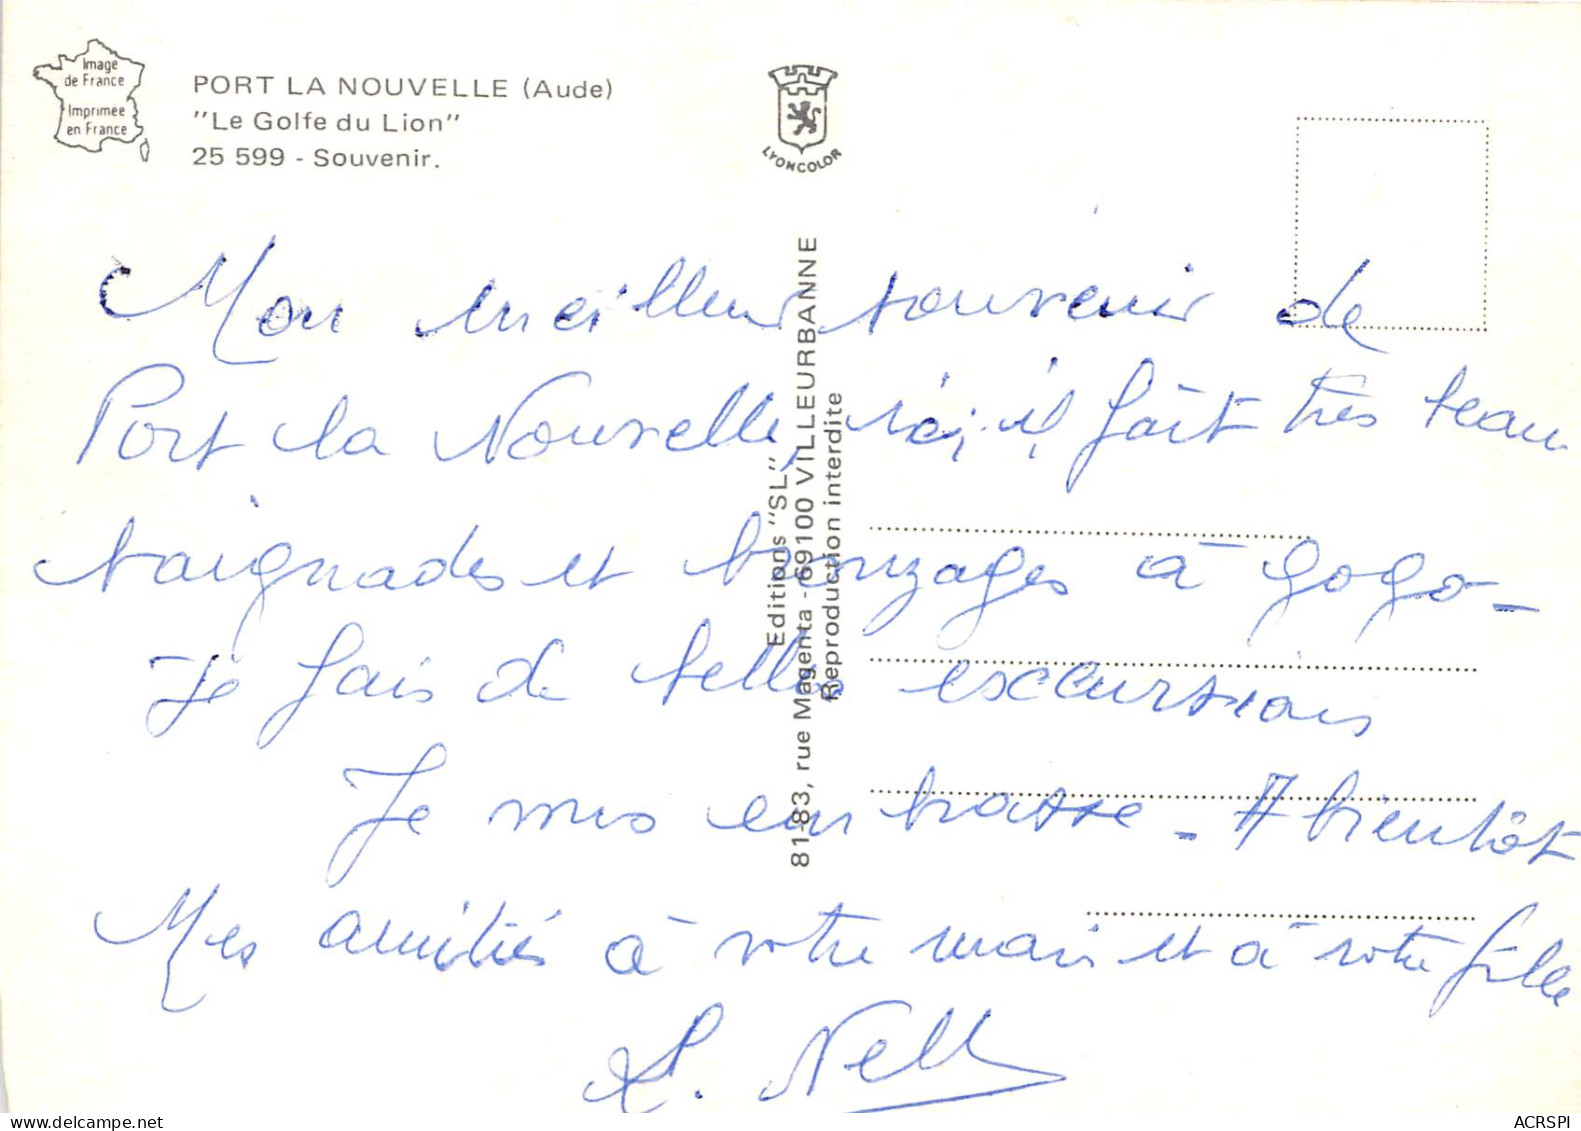 Image
de France
Imprimée
en France
PORT LA NOUVELLE (Aude)
"Le Golfe du Lion"
25 599 - Souvenir.
LYONCOLOR
Editions "SL"
81-83, rue Magenta - 69100 VILLEURBANNE
Reproduction interdite
Mon meilleur souvenir de
Port la Nouvelle, ici, il fait très beau
baignades et bronzages à gogo -
Je fais de belles excursions
Je vous embrasse - A bientôt
Mes amitiés à votre mari et à votre fille
Nell
ACRSPI